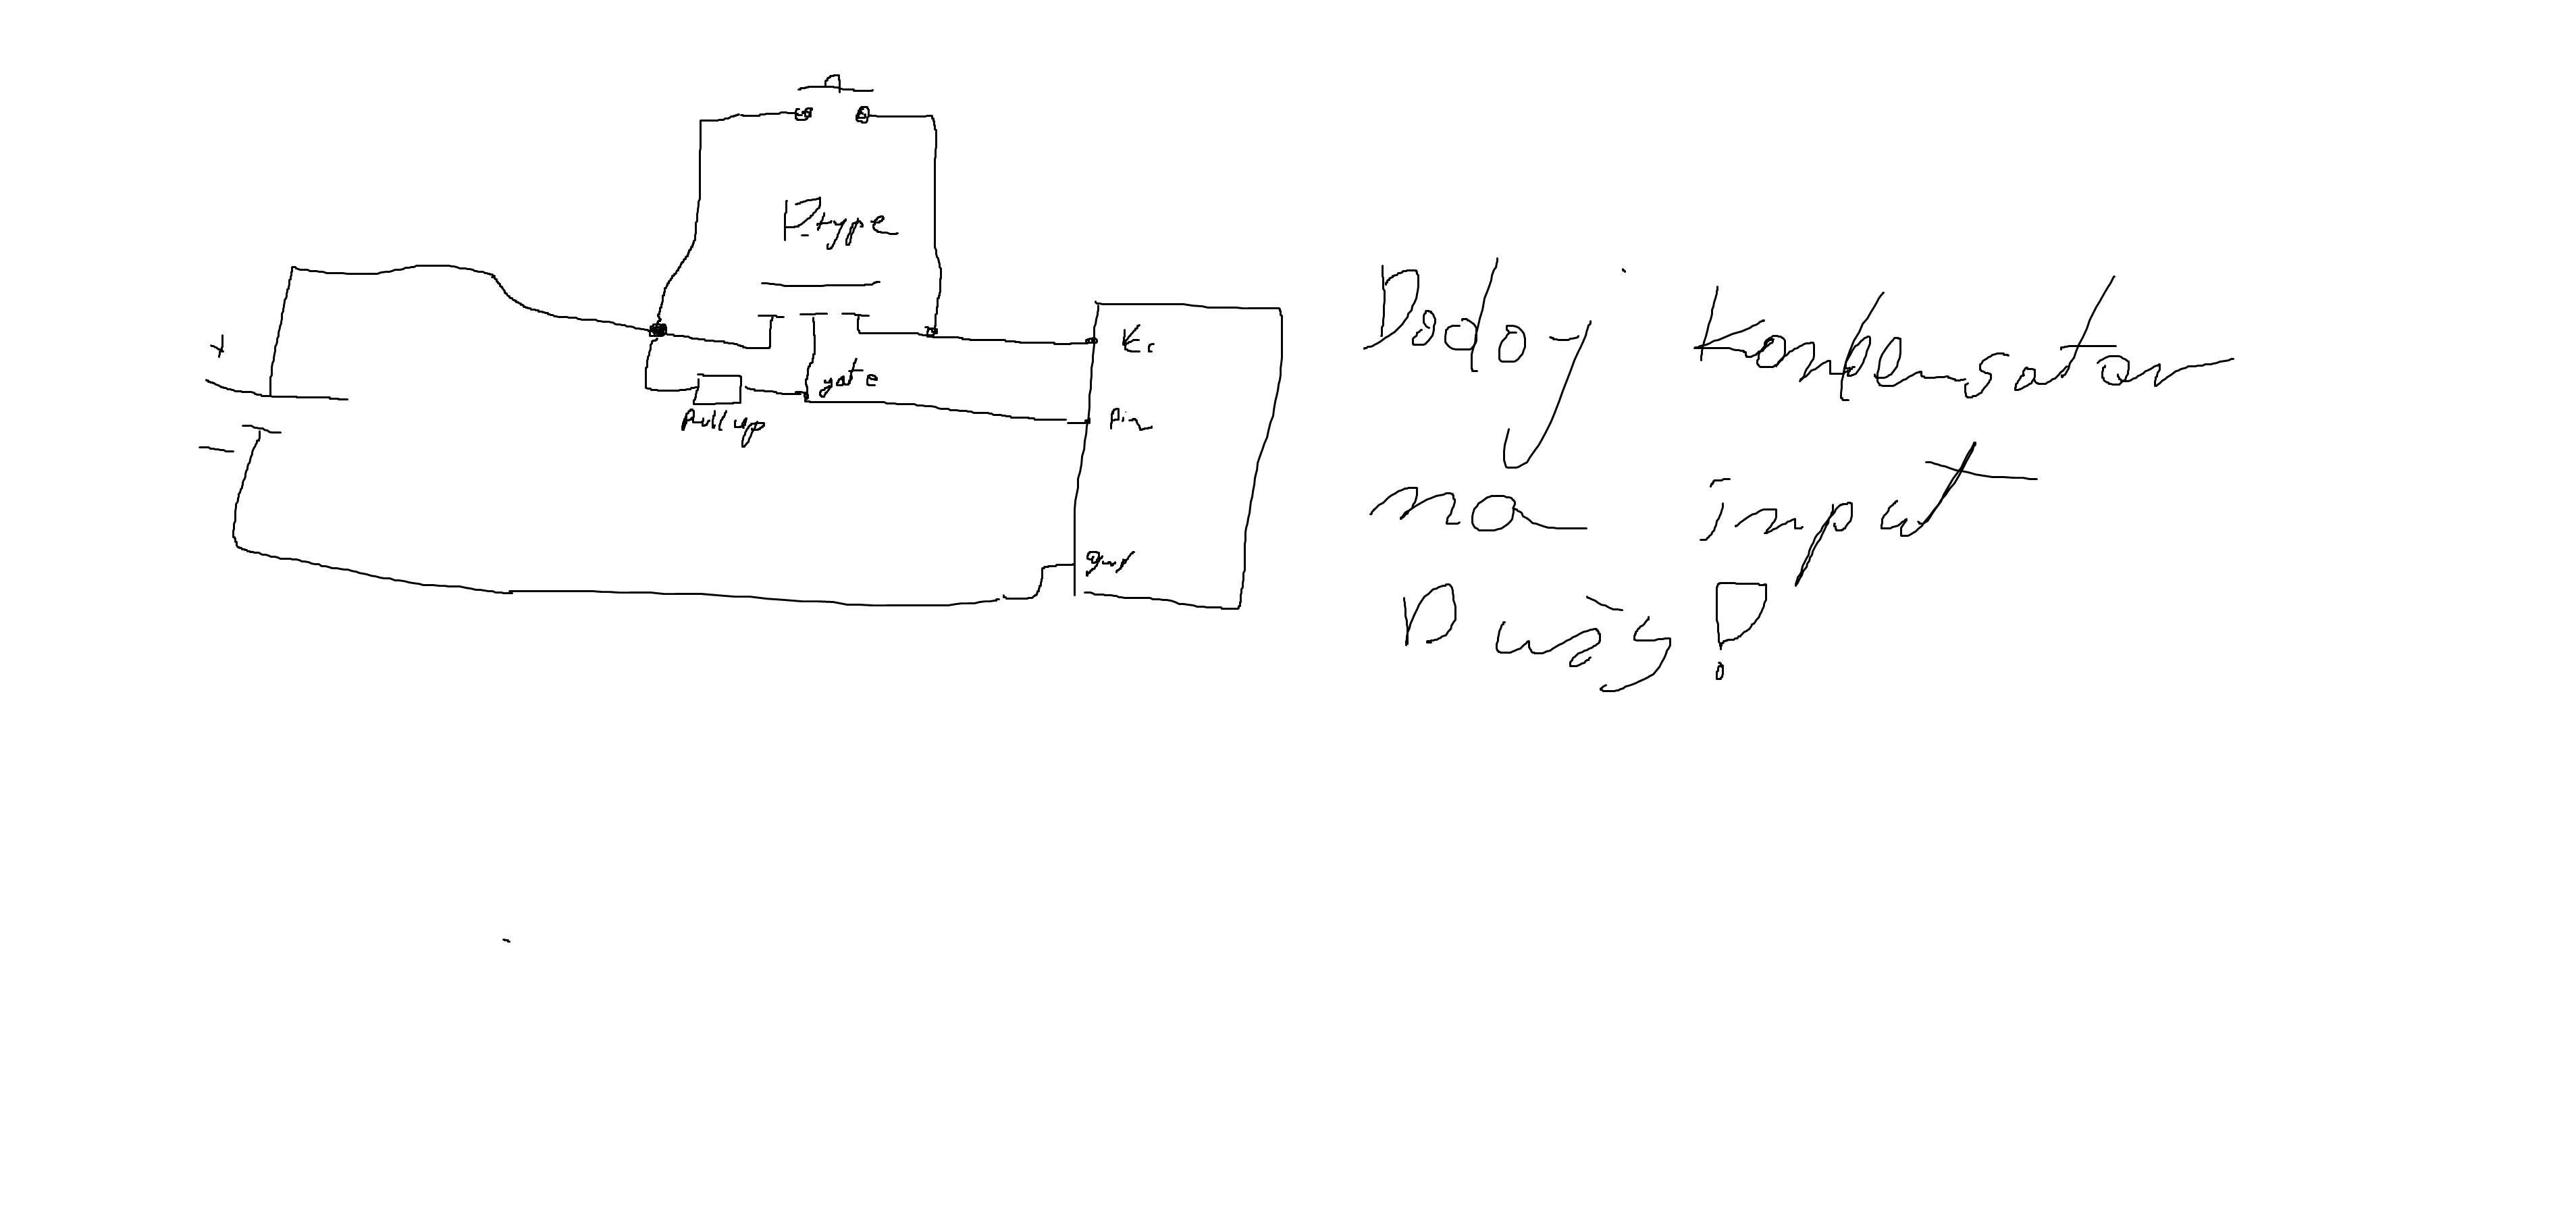 P-type
+
Vcc
gate
Pull up
Pin
-
gnd
Dodaj kondensator
na input
Duży!